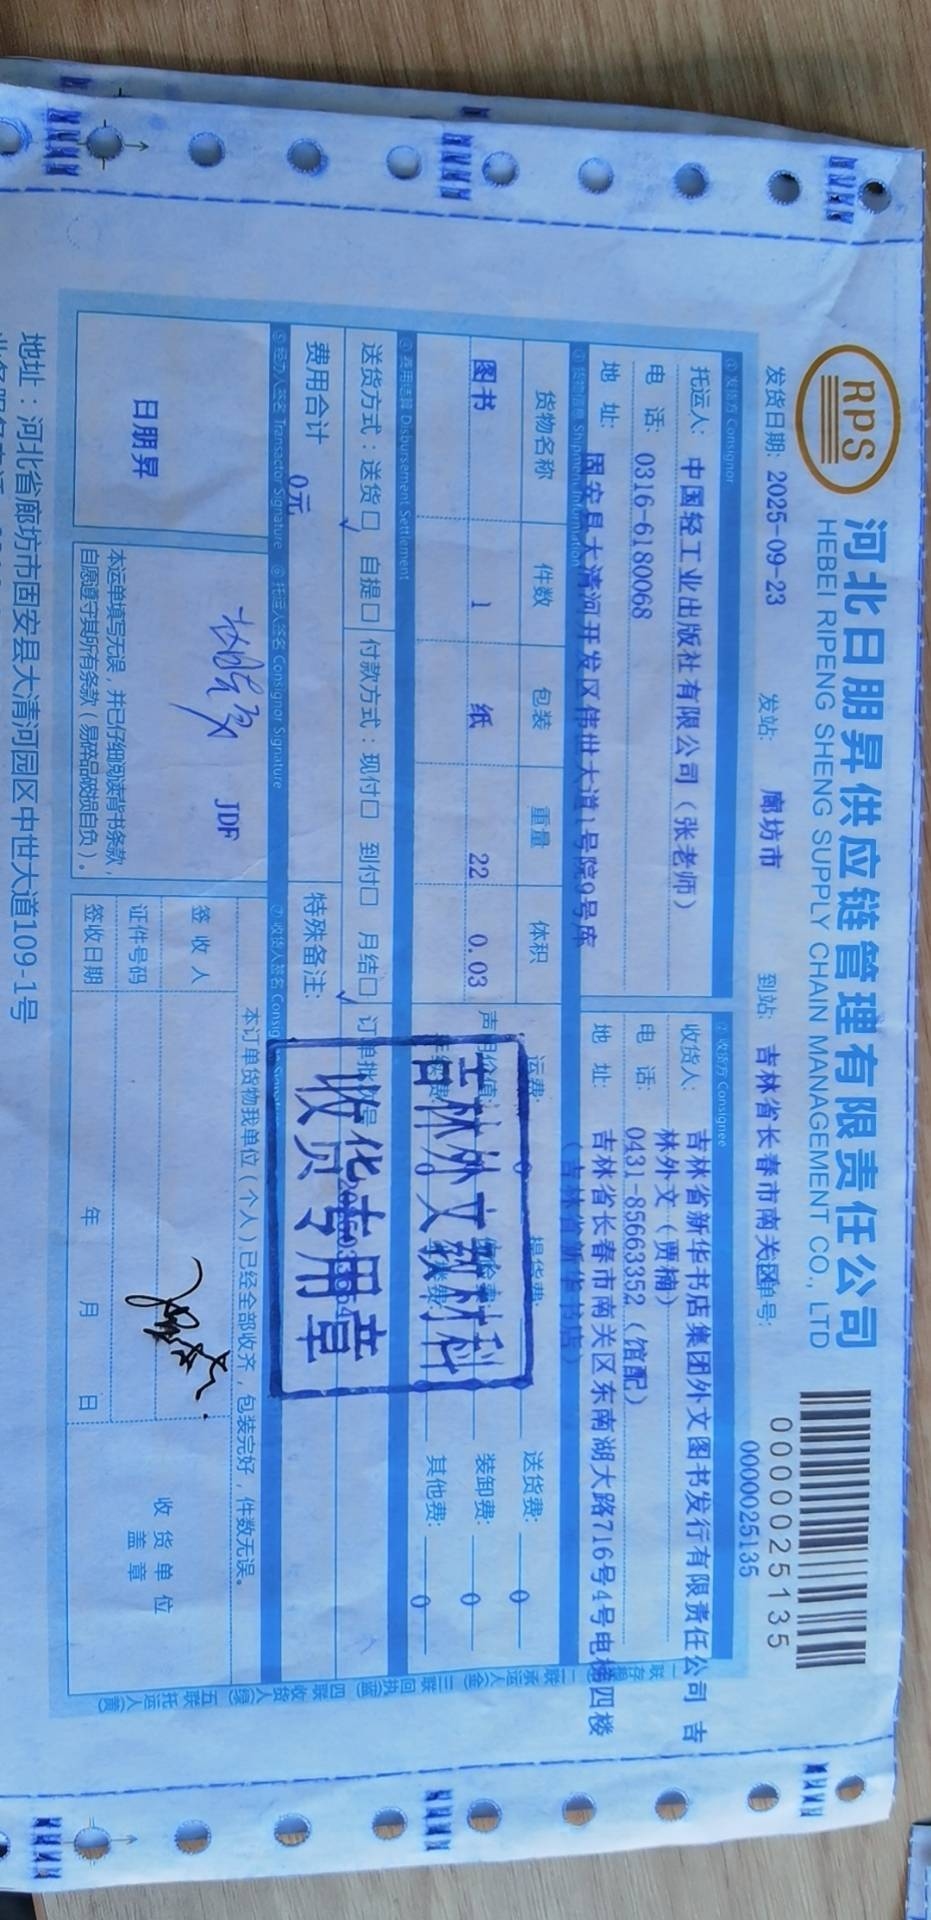 RPS
河北日朋昇供应链管理有限责任公司
HEBEI RIPENG SHENG SUPPLY CHAIN MANAGEMENT CO., LTD
0000025135
发货日期: 2025-09-23 发站: 廊坊市 到站: 吉林省长春市南关区 单号: 0000025135
① 发货方 Consignor
托运人: 中国轻工业出版社有限公司（张老师）
电 话: 0316-6180068
地 址: 固安县大清河开发区伟世大道1号院9号库
② 收货方 Consignee
收货人: 吉林省新华书店集团外文图书发行有限责任公司 吉
林外文（贾楠）
电 话: 0431-85663352（馆配）
地 址: 吉林省长春市南关区东南湖大路716号4号电梯四楼
（吉林省新华书店）
③ 货物信息 Shipment Information
货物名称 件数 包装 重量 体积
图书 1 纸 22 0.03
运费: 0 提货费: 送货费: 0
声明价值: 装卸费: 0
其他费: 0
Disbursement Settlement
送货方式：送货□ 自提□ 付款方式：现付□ 到付□ 月结□ 订单批号
费用合计 0元 特殊备注:
吉林外文教材科
收货专用章
⑤ 经办人签名 Transactor Signature ⑥ 托运人签名 Consignor Signature ⑦ 收货人签名
日朋昇
JDF
本运单填写无误，并已仔细阅读背书条款，
自愿遵守其所有条款（易碎品破损自负）。
本订单货物我单位（个人）已经全部收齐，包装完好，件数无误。
签 收 人
证件号码
签收日期 年 月 日
收 货 单 位
盖 章
地址：河北省廊坊市固安县大清河园区中世大道109-1号